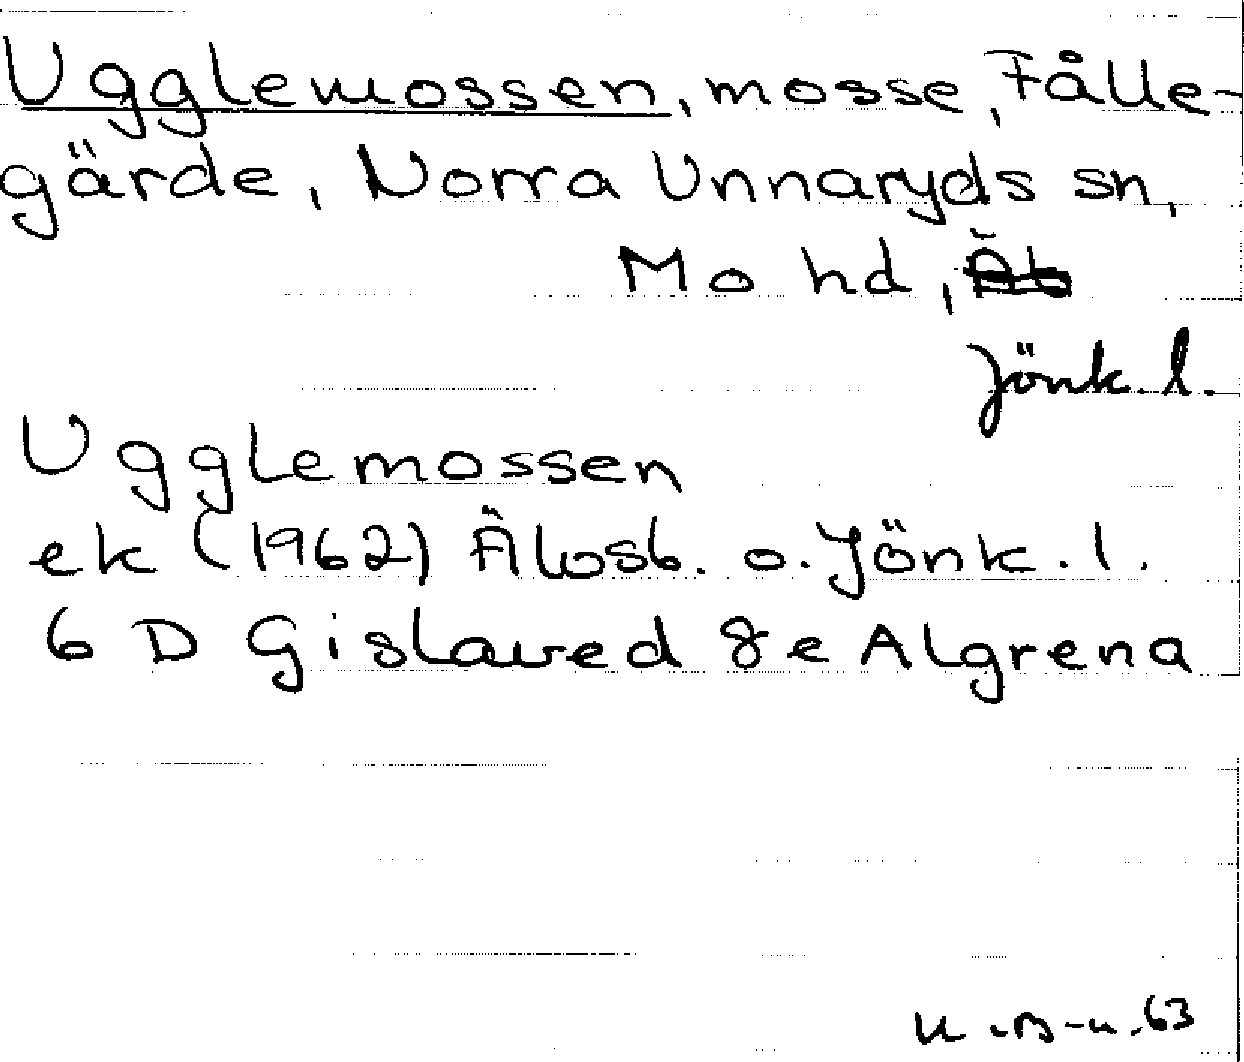 Ugglemossen, mosse, Fålle-
gärde, Norra Unnaryds sn,
Mo hd,
Jönk. l.
Ugglemossen
ek (1962) Älvsb. o. Jönk. l.
6 D Gislaved 8e Algrena
63